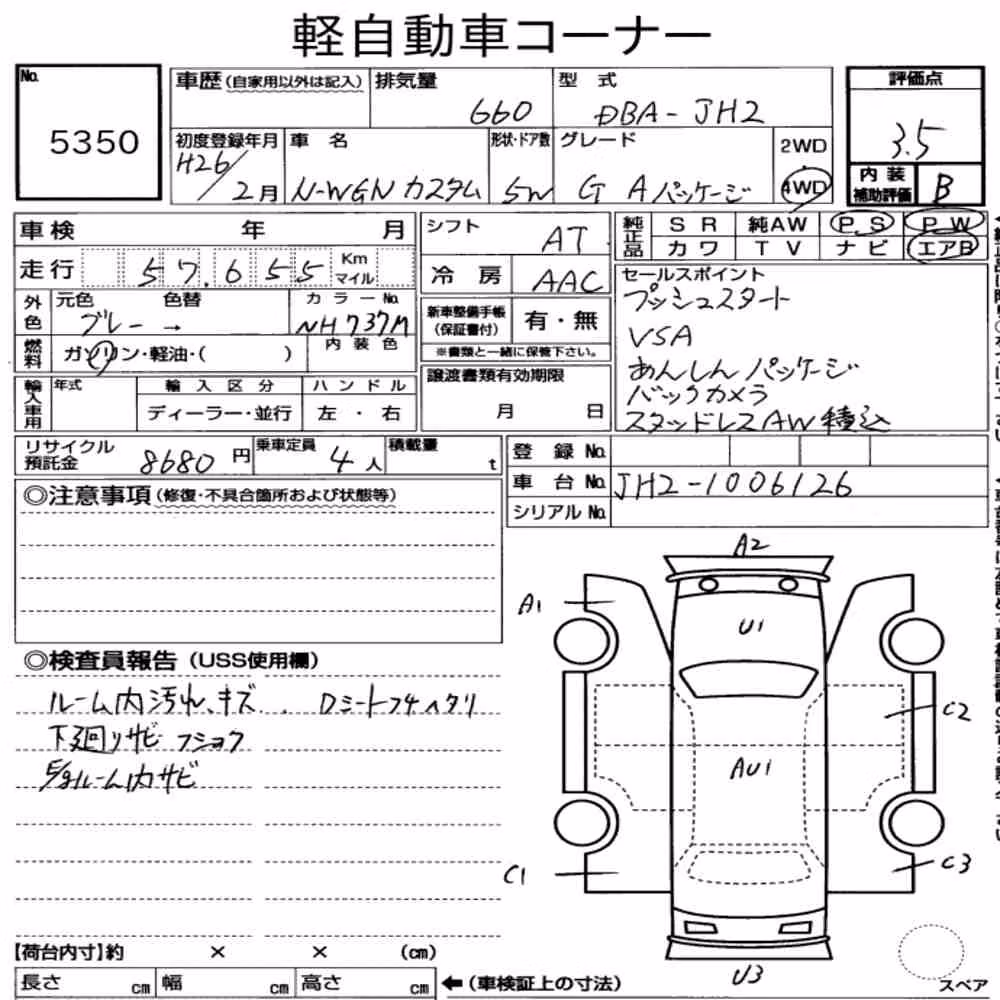 軽自動車コーナー
No.
5350
車歴(自家用以外は記入)
排気量
660
型 式
DBA-JH2
評価点
3.5
初度登録年月
H26/2月
車 名
N-WGN カスタム
形状・ドア数
5W
グレード
G Aパッケージ
2WD
4WD
内 装
補助評価
B
車検 年 月
走行 57,655 Km マイル
シフト
AT
冷 房
AAC
純正品
SR 純AW PS PW
カワ TV ナビ エアB
セールスポイント
プッシュスタート
VSA
あんしんパッケージ
バックカメラ
スタッドレスAW積込
外色
元色 色替
グレー →
カラーNo.
NH737M
内装色
燃料
ガソリン・軽油・( )
新車整備手帳
(保証書付)
有・無
※書類と一緒に保管下さい。
輸入車用
年式
輸入区分
ディーラー・並行
ハンドル
左・右
譲渡書類有効期限
月 日
リサイクル
預託金
8680円
乗車定員
4人
積載量
t
登録No.
車台No. JH2-1006126
シリアルNo.
◎注意事項(修復・不具合箇所および状態等)
◎検査員報告(USS使用欄)
ルーム内汚れ、キズ.
下廻りサビ フショク
E/gルーム内サビ
A2
A1
U1
C2
AU1
C1
C3
U3
【荷台内寸】約 × × (cm)
長さ cm 幅 cm 高さ cm ←(車検証上の寸法)
スペア